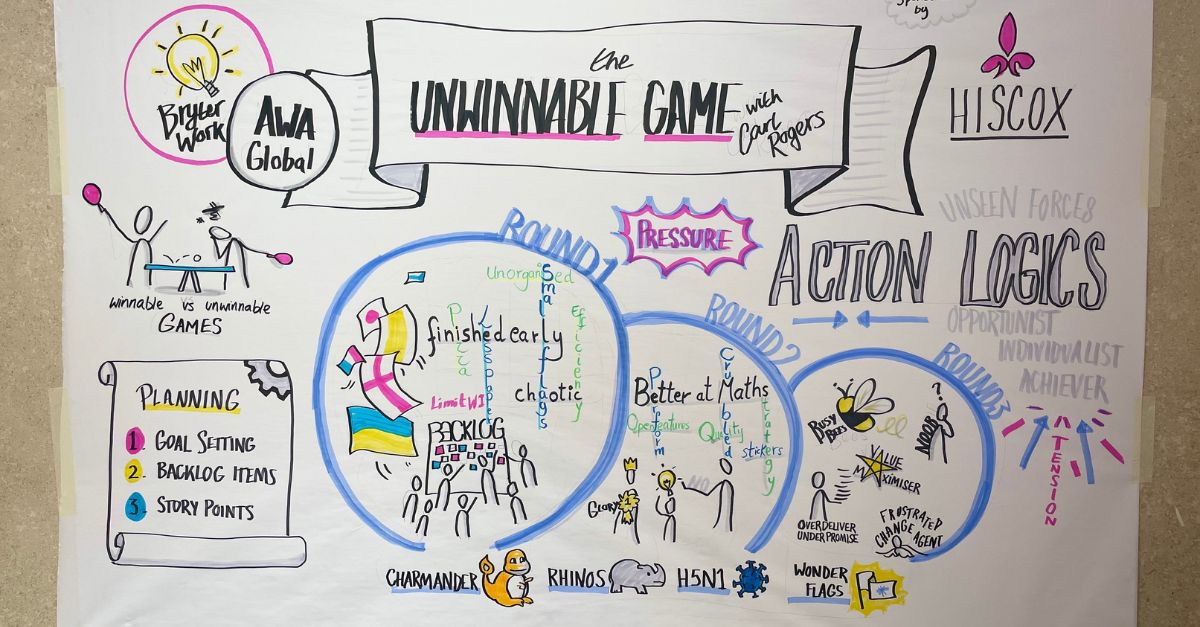 by
Bryter
Work
AWA
Global
the
UNWINNABLE GAME
with
Carl
Rogers
HISCOX
winnable vs unwinnable
GAMES
PLANNING
1. GOAL SETTING
2. BACKLOG ITEMS
3. STORY POINTS
ROUND 1
Unorganised
Small flags
Efficiency
Pizza
Less people
finished early
chaotic
Limit WI
BACKLOG
PRESSURE
ROUND 2
Better at Maths
Crumbled
Open features
Quality
strategy
stickers
NO
Glory
1
UNSEEN FORCES
ACTION LOGICS
OPPORTUNIST
INDIVIDUALIST
ACHIEVER
TENSION
ROUND 3
BUSY
BEES
?
NOOB
VALUE
MAXIMISER
OVERDELIVER
UNDERPROMISE
FRUSTRATED
CHANGE AGENT
CHARMANDER
RHINOS
H5N1
WONDER
FLAGS